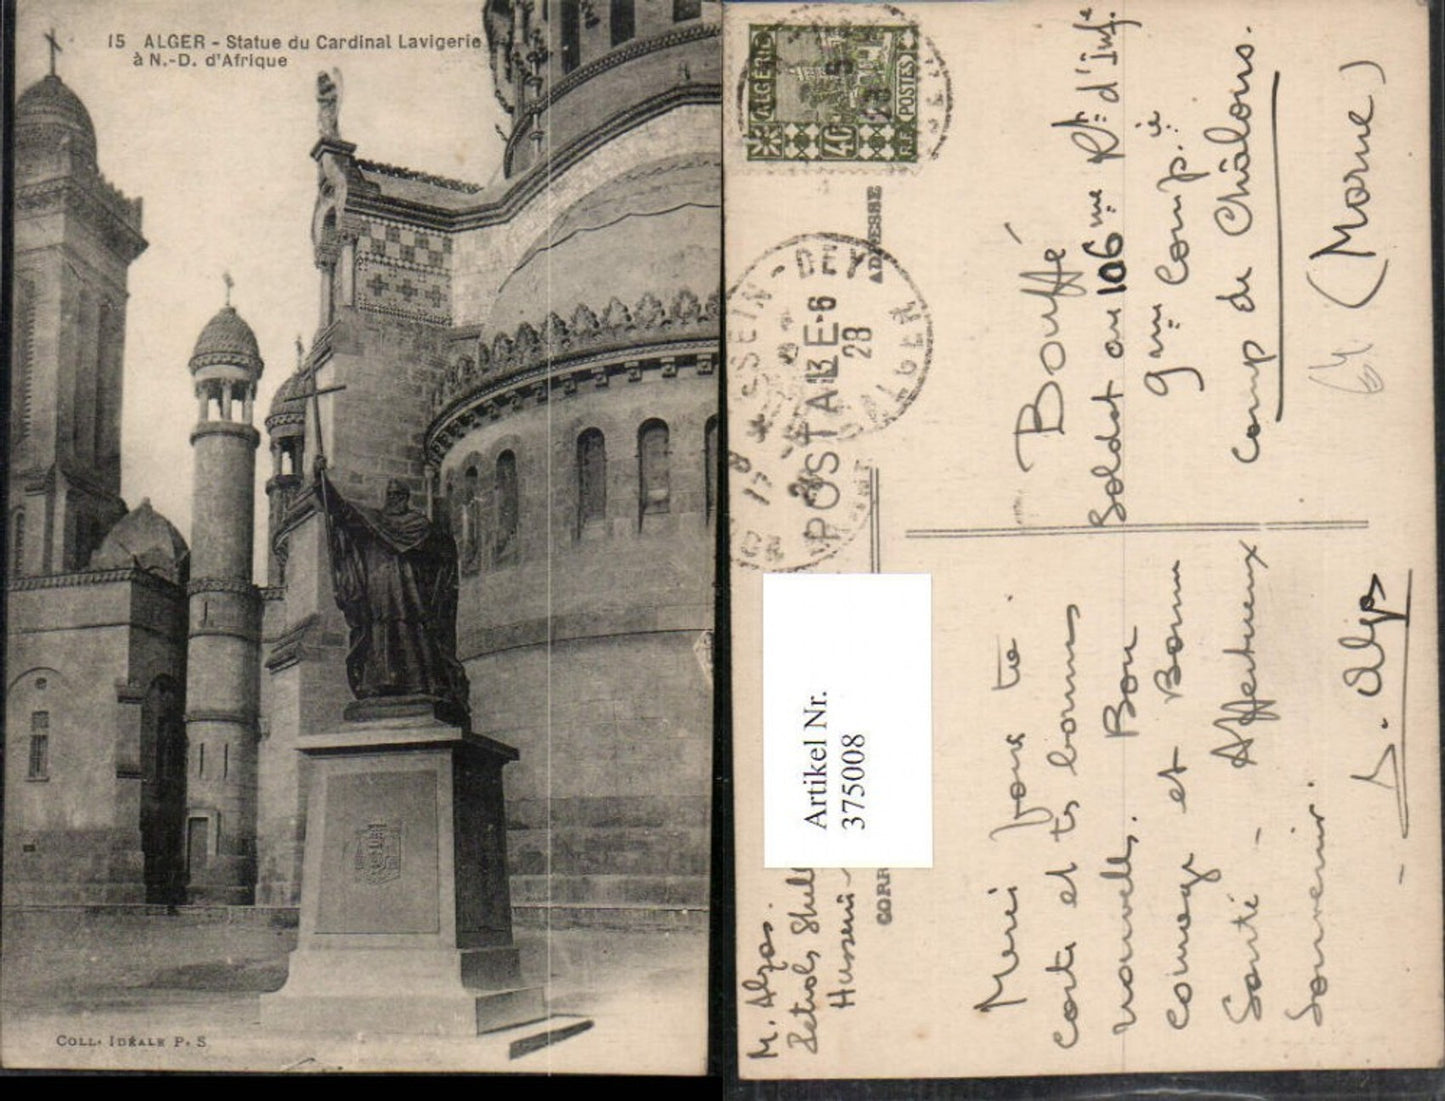 15 ALGER - Statue du Cardinal Lavigerie
à N.-D. d'Afrique
COLL. IDÉALE P. S
ALGÉRIE
POSTES
40
R.F.
ADRESSE
POSTALE
13 E-6
28
ALGER
Artikel Nr.
375008
Bouffé
Soldat au 106me Rt d'Inf.
9me Comp.ie
Camp de Châlons.
(Marne)
M. Algos.
Petrols Shell
Hussein-
CORR
Merci pour ta
carte et tes bonnes
nouvelles. Bon
courage et Bonne
Santé - Affectueux
Souvenir.
- S. Algos